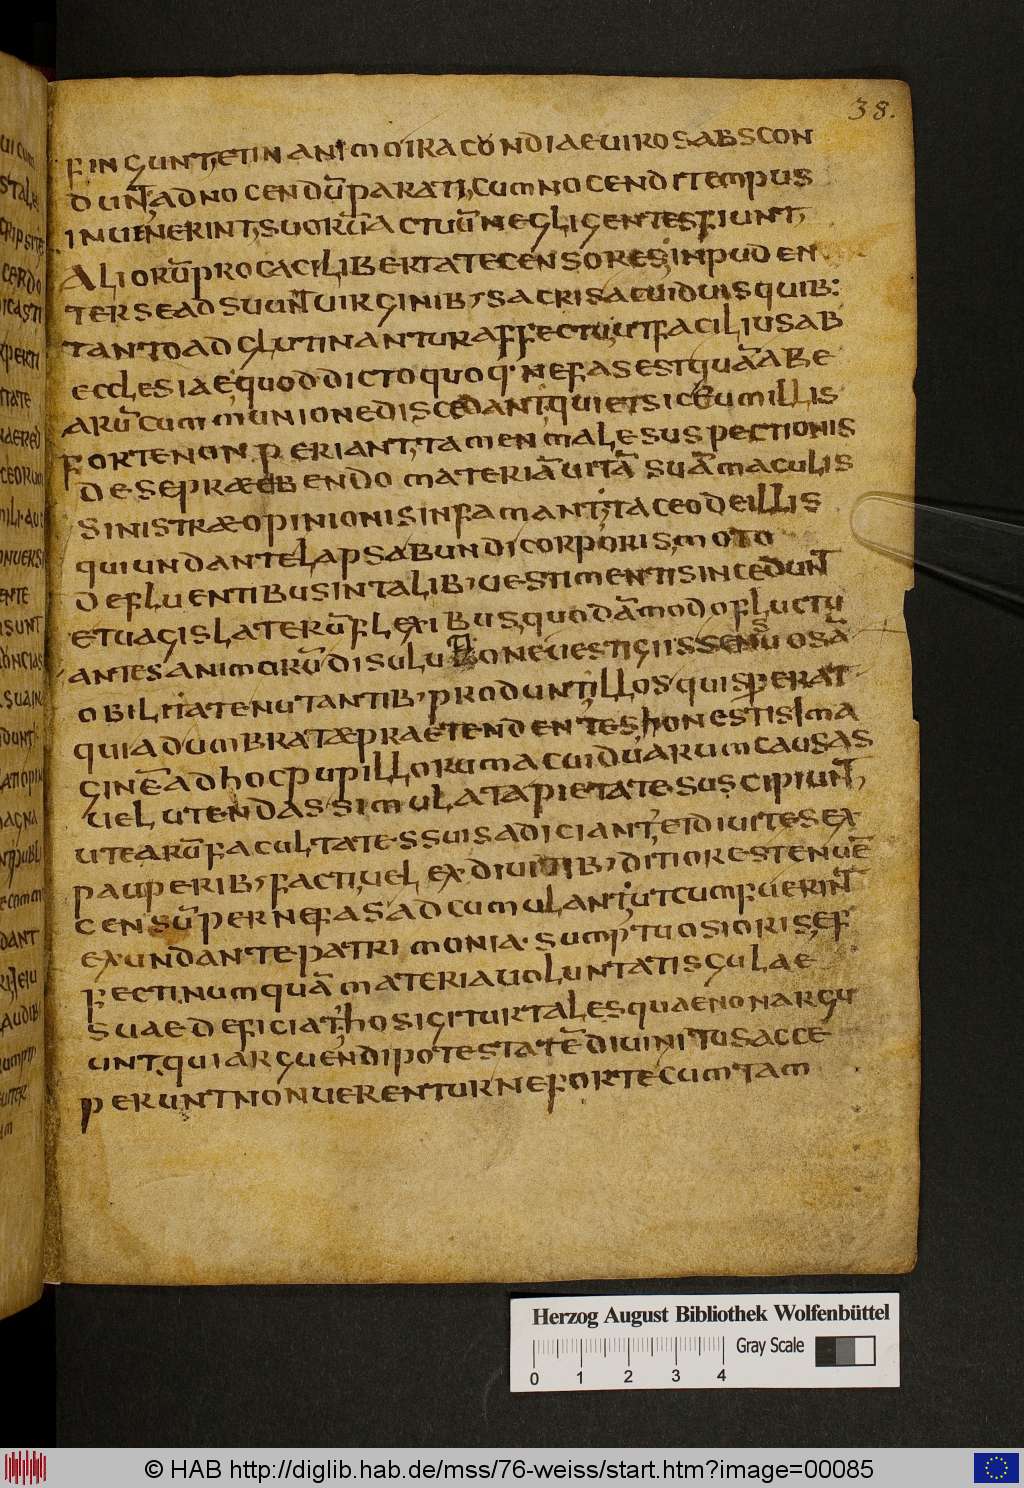 38.
FINGUNT, ET IN ANIMO IRACUNDIAE VIROS ABSCON
DUNT, AD NOCENDŪ PARATI, CUM NOCENDI TEMPUS
INVENERINT, SUORŪ ACTUŪ NEGLIGENTES FIUNT,
ALIORŪ PROCACI LIBERTATE CENSORES, INPUDEN
TER SE AD SUUNT VIRGINIB, SACRIS AC VIDUIS QUIB:
TANTO ADGLUTINANTUR AFFECTU, UT FACILIUS AB
ECCLESIAE QUOD DICTO QUOQ· NEFAS EST QUĀ AB E
ARŪ CUMMUNIONE DISCEDANT, QUI ETSI CŪ ILLIS
FORTE NON PERIANT, TAMEN MALE SUSPECTIONIS
DE SE PRÆBENDO MATERIĀ VITĀ SUĀ MACULIS
SINISTRÆ OPINIONIS INFAMANT, TACEO DE ILLIS
QUI UNDANTE LAPSABUNDI CORPORIS, MOTO
DEFLUENTIBUS IN TALIB, VESTIMENTIS INCEDUNT
ET VAGIS LATERŪ FLEXIBUS, QUODĀMODO FLUCTU
ANTES ANIMORŪ DISULUTIONE VESTIGIIS SENSUOSĀ
OBILITATE NUTANTIB, PRODUNT ILLOS QUIS FERAT
QUI ADUMBRATÆ PRAETENDENTES HONESTISSIMA
GINĒ AD HOC PUPILLORUM AC VIDUARUM CAUSAS
VELUTENDAS SIMULATA PIETATE SUSCIPIUNT,
UT EARŪ FACULTATES SUIS ADICIANT, ET DIVITES EX
PAUPERIB, FACTI, VEL EX DIVITIB, DITIORES TENUĒ
CENSŪ PER NEFAS AD CUMULANT, UT CUM FUERINT
EXUNDANTE PATRIMONIA· SUMPTUOSIORIS, EF
FECTI NUMQUĀ MATERIA VOLUNTATIS GULAE
SUAE DEFICIAT, HOS IGITUR TALES QUAE NON ARGU
UNT, QUI ARGUENDI POTESTATĒ DIVINITUS ACCE
PERUNT NON VERENTUR NE FORTE CUM TAM
Herzog August Bibliothek Wolfenbüttel
Gray Scale
0 1 2 3 4
© HAB http://diglib.hab.de/mss/76-weiss/start.htm?image=00085